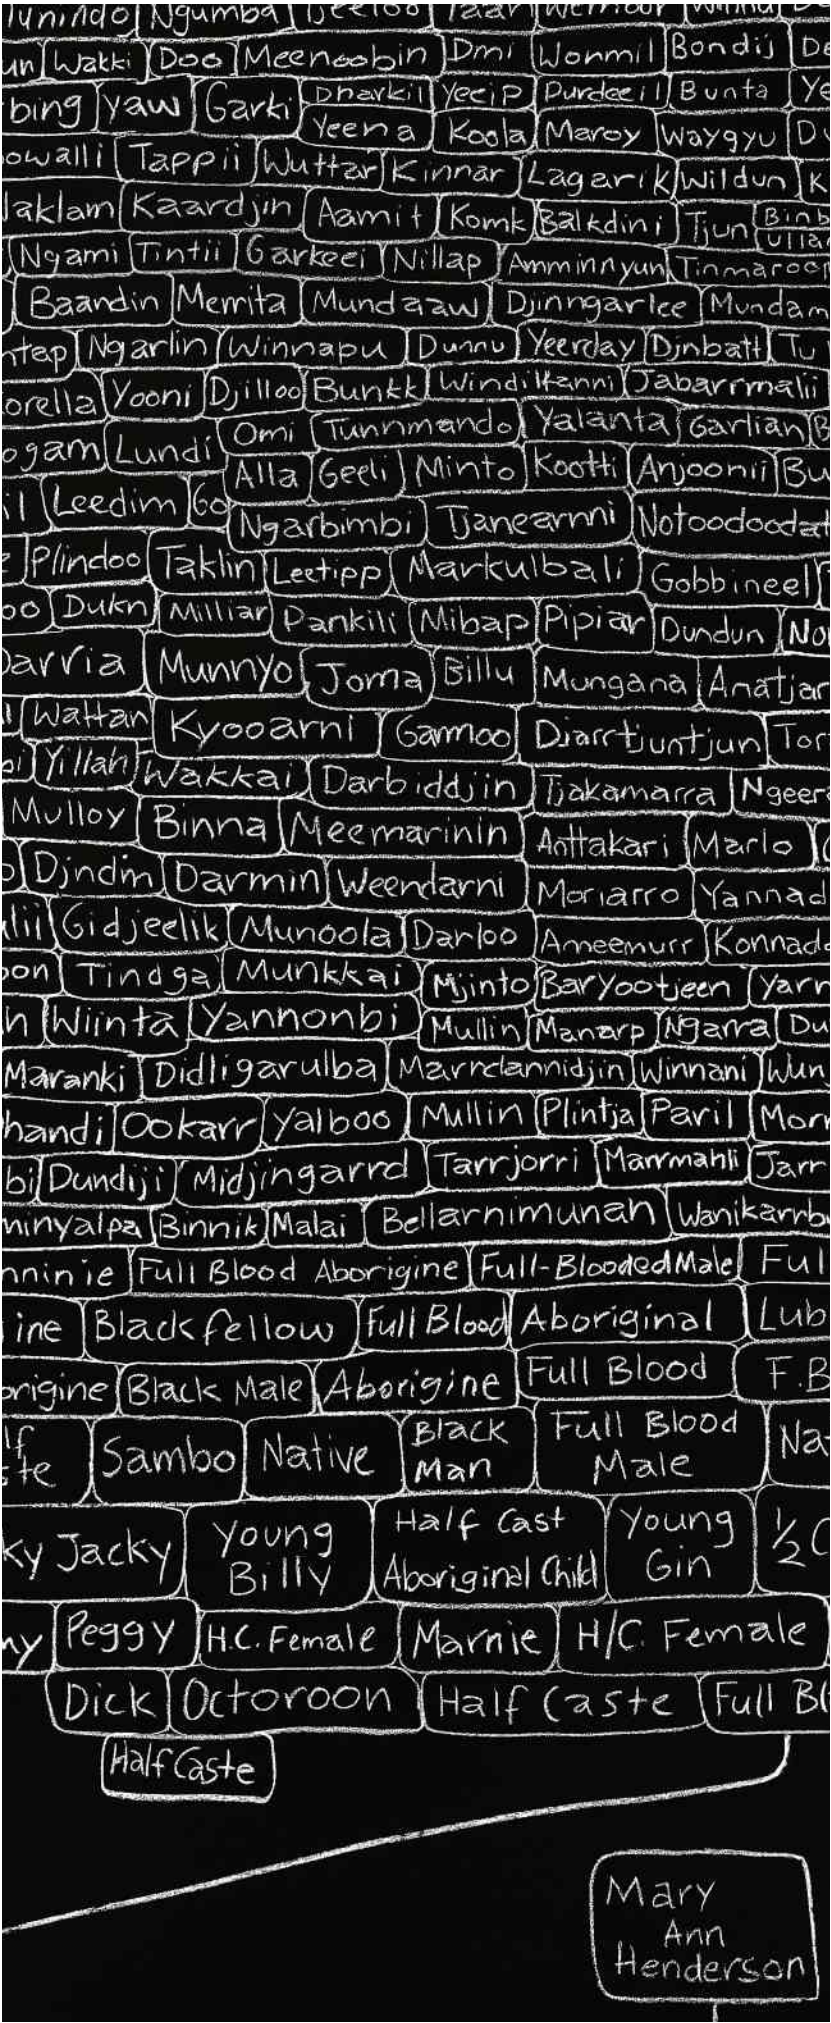 Ngumba
Wakki Doo Meenoobin Dmi Wonmil Bondij
bing Yaw Garki Dharkil Yeeip Purdeeil Bunta
Yeena Koola Maroy Waygyu
owalli Tappii Wuttar Kinnar Lagarik Wildun
Jaklam Kaardjin Aamit Komk Balkdini Tjun
Ngami Tintii Garkeei Nillap Amminnyun Tinmaroo
Baandin Merrita Mundaaw Djinngarlee Mundam
ntep Ngarlin Winnapu Dunnu Yeerday Djnbatt Tu
orella Yooni Djilloo Bunkk Windiltanni Jabarrmalii
ogam Lundi Omi Tunnmando Yalanta Garlian B
Alla Geeli Minto Kootti Anjoonii Bu
il Leedim Go Ngarbimbi Tjanearnni Notoodooda
Plindoo Taklin Leetipp Markulbali Gobbineel
oo Dukn Milliar Pankili Mibap Pipiar Dundun No
Darria Munnyo Joma Billu Mungana Anatjar
Wattan Kyooarni Gamoo Djarrtjuntjun Tor
Yillah Wakkai Darbiddjin Tjakamarra Ngeer
Mulloy Binna Meemarinin Anttakari Marlo
Djndin Darmin Weendarni Moriarro Yannad
lii Gidjeelik Munoola Darloo Ameemurr Konnad
oon Tindga Munkkai Mjinto Baryootjeen Yarr
h Wiinta Yannonbi Mullin Manarp Ngarra Du
Maranki Didligarulba Marndannidjin Winnani Wun
handi Ookarr Yalboo Mullin Plintja Paril Morr
bi Dundiji Midjingarrd Tarrjorri Marrmahli Jarr
minyalpa Binnik Malai Bellarnimunah Wanikarrb
nnin'ie Full Blood Aborigine Full-Blooded Male Ful
ine Blackfellow Full Blood Aboriginal Lub
origine Black Male Aborigine Full Blood F.B
lf Sambo Native Black Full Blood Na
te Man Male
ky Jacky Young Half Cast Young ½ C
Billy Aboriginal Child Gin
ny Peggy H.C. Female Marnie H/C. Female
Dick Octoroon Half Caste Full Bl
Half Caste
Mary
Ann
Henderson